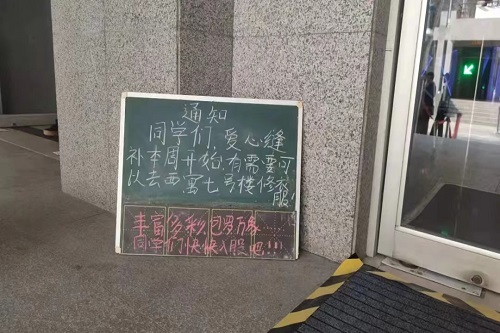 通知
同学们,爱心缝
补本周开始,有需要可
以去西寓七号楼修衣
服!
丰富多彩,包罗万象......
同学们快快入股吧!!!